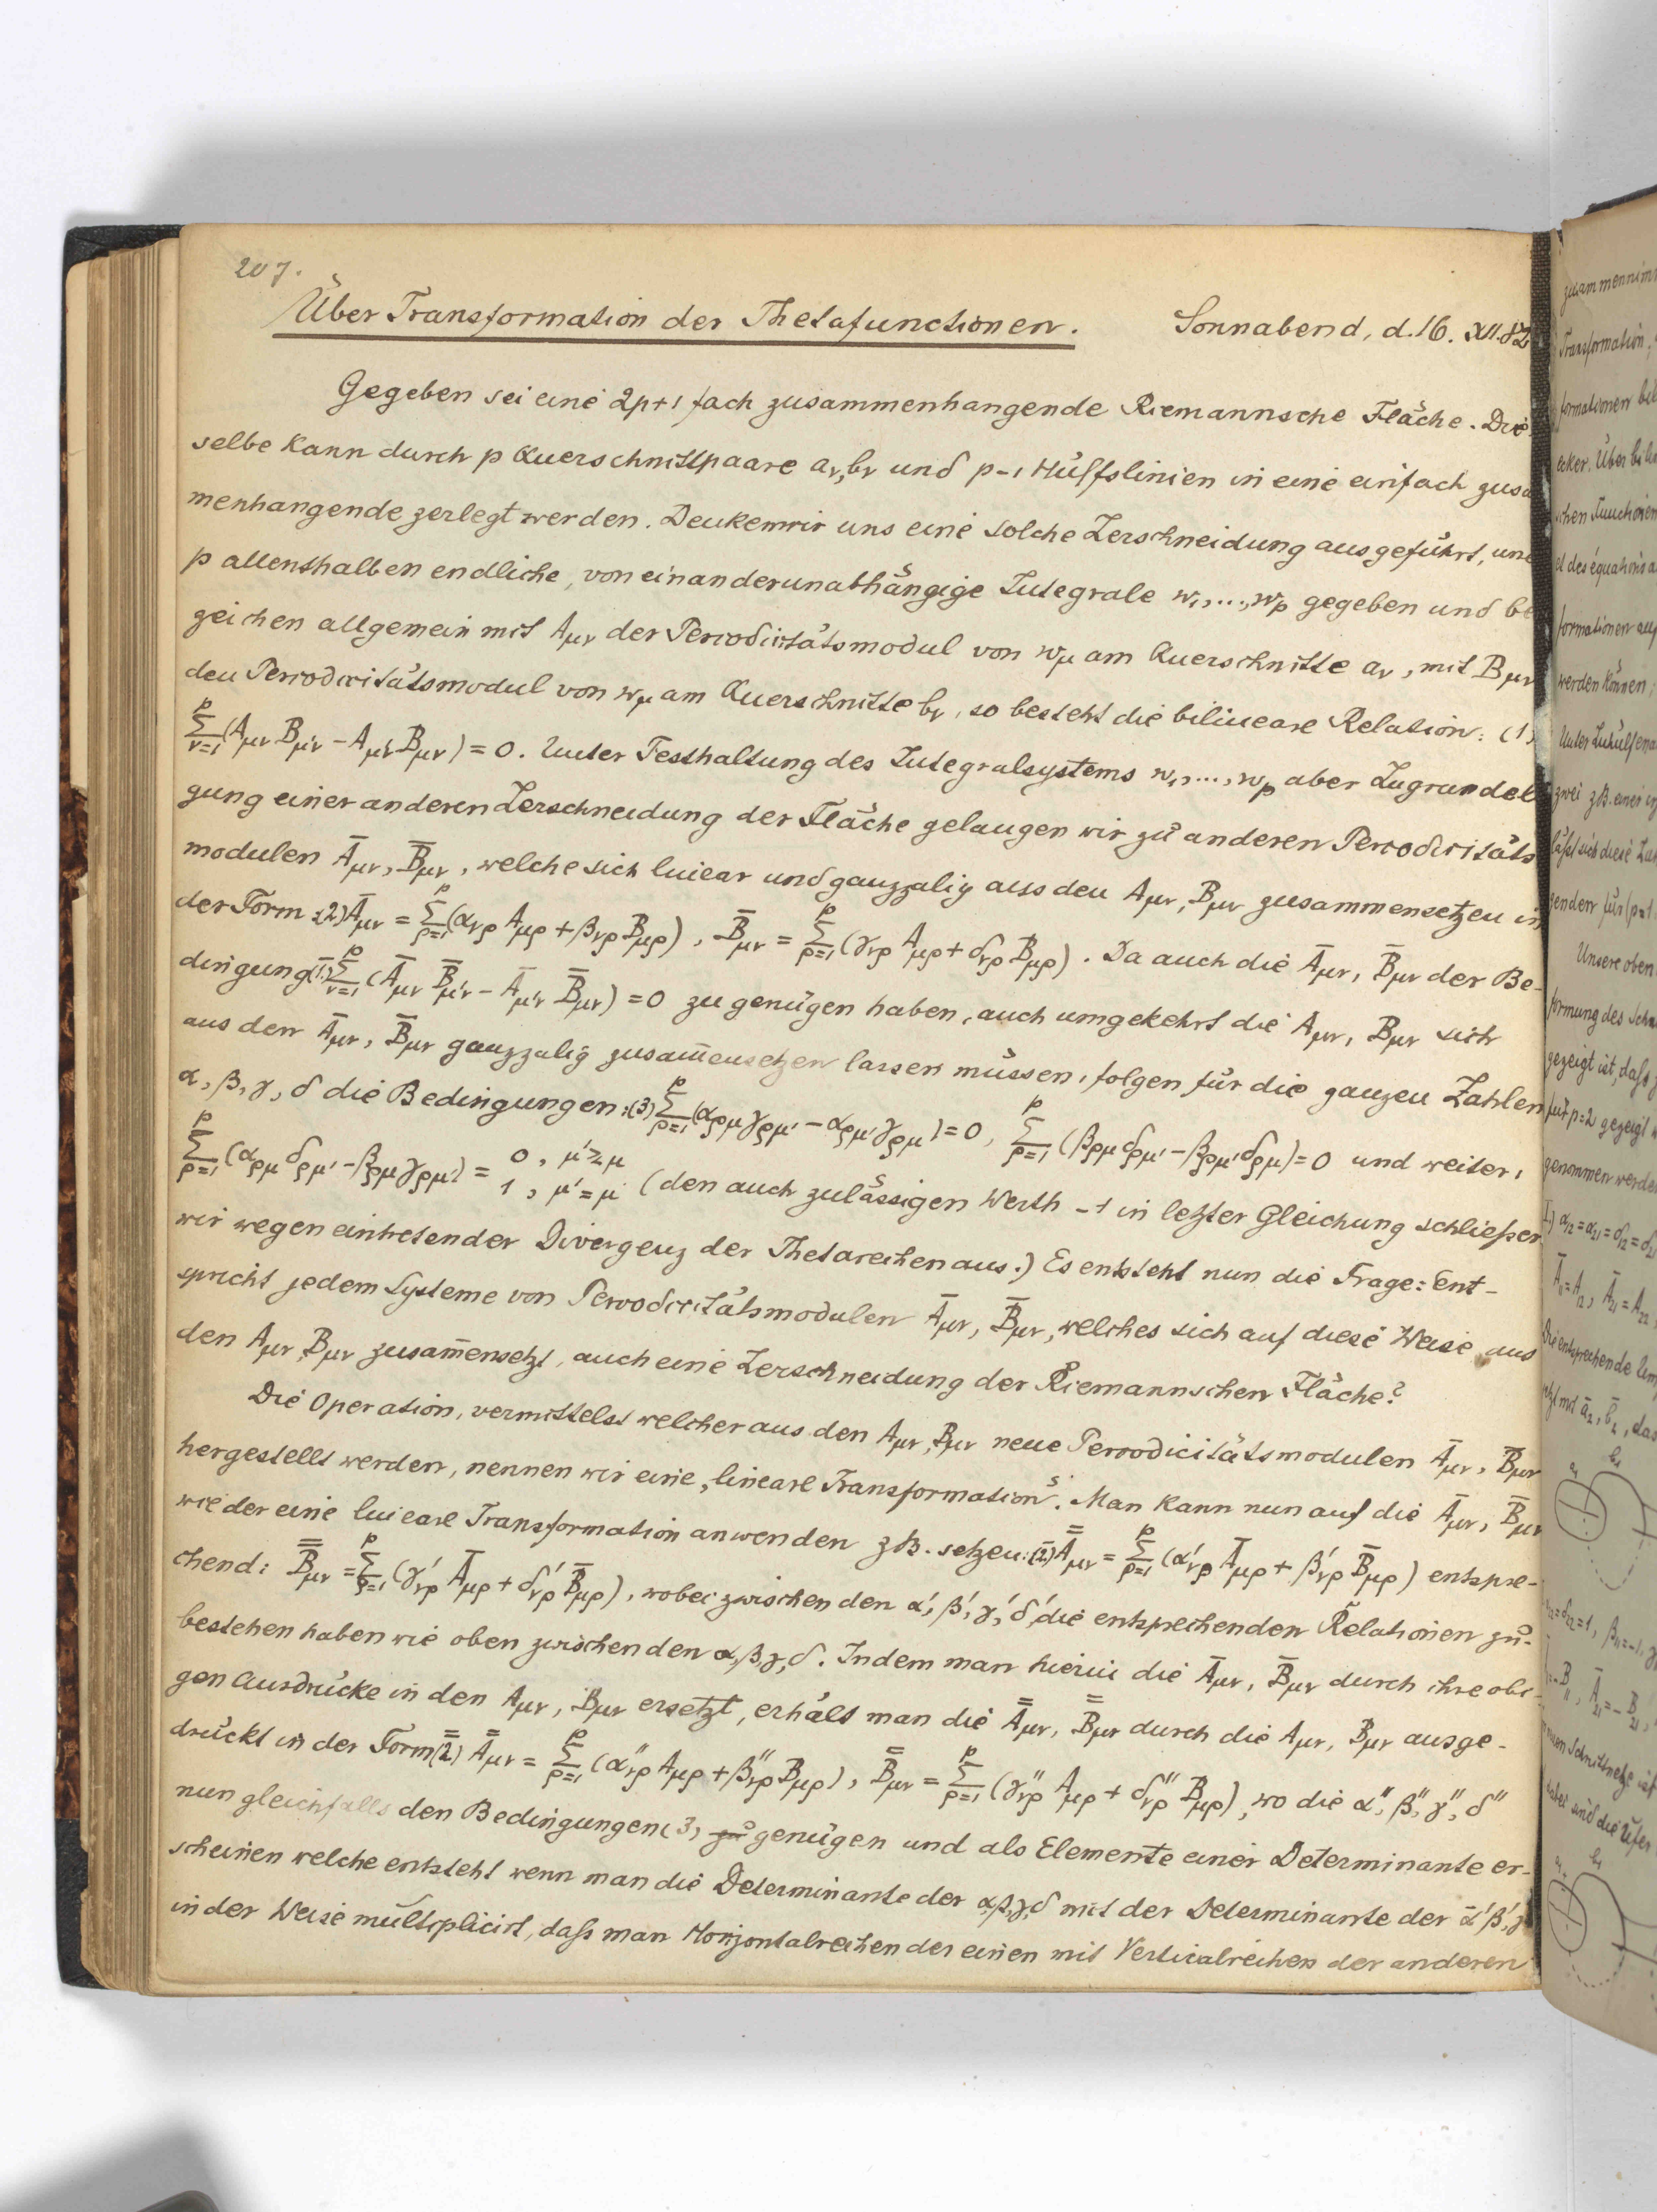 207.
Über Transformation der Thetafunctionen. Sonnabend, d. 16. XII. 82
Gegeben sei eine 2p+1 fach zusammenhangende Riemannsche Fläche. Die
selbe kann durch p Querschnittpaare aν, bν und p-1 Hülfslinien in eine einfach zusa
menhangende zerlegt werden. Denken wir uns eine solche Zerschneidung ausgeführt, und
p allenthalben endliche, von einander unabhängige Integrale w₁, ..., wp gegeben und be
zeichen allgemein mit Aμν der Periodicitätsmodul von wμ am Querschnitte aν, mit Bμν
den Periodicitätsmodul von wμ am Querschnitte bν, so besteht die bilineare Relation: (1)
Σ_{ν=1}^{p} (Aμν Bμ'ν - Aμ'ν Bμν) = 0. Unter Festhaltung des Integralsystems w₁, ..., wp aber Zugrundele
gung einer anderen Zerschneidung der Fläche gelangen wir zu anderen Periodicitäts
modulen Āμν, B̄μν, welche sich linear und ganzzalig aus den Aμν, Bμν zusammensetzen in
der Form: (2) Āμν = Σ_{ρ=1}^{p} (ανρ Aμρ + βνρ Bμρ), B̄μν = Σ_{ρ=1}^{p} (γνρ Aμρ + δνρ Bμρ). Da auch die Āμν, B̄μν der Be-
dingung (1̄) Σ_{ν=1}^{p} (Āμν B̄μ'ν - Āμ'ν B̄μν) = 0 zu genügen haben, auch umgekehrt die Aμν, Bμν sich
aus den Āμν, B̄μν ganzzalig zusam̄ensetzen lassen müssen, folgen für die ganzen Zahlen
α, β, γ, δ die Bedingungen: (3) Σ_{ρ=1}^{p} (αρμ γρμ' - αρμ' γρμ) = 0, Σ_{ρ=1}^{p} (βρμ δρμ' - βρμ' δρμ) = 0 und weiter,
Σ_{ρ=1}^{p} (αρμ δρμ' - βρμ γρμ') = 0, μ' ≷ μ 1, μ' = μ (den auch zulässigen Werth -1 in letzter Gleichung schließen
wir wegen eintretender Divergenz der Thetareihen aus.) Es entsteht nun die Frage: Ent-
spricht jedem Systeme von Periodicitätsmodulen Āμν, B̄μν, welches sich auf diese Weise aus
den Aμν, Bμν zusam̄ensetzt, auch eine Zerschneidung der Riemannschen Fläche?
Die Operation, vermittelst welcher aus den Aμν, Bμν neue Periodicitätsmodulen Āμν, B̄μν
hergestellt werden, nennen wir eine „lineare Transformation“. Man kann nun auf die Āμν, B̄μν
wieder eine lineare Transformation anwenden z.B. setzen: (2̄) A̿μν = Σ_{ρ=1}^{p} (α'νρ Āμρ + β'νρ B̄μρ) entspre-
chend: B̿μν = Σ_{ρ=1}^{p} (γ'νρ Āμρ + δ'νρ B̄μρ), wobei zwischen den α', β', γ', δ' die entsprechenden Relationen zu
bestehen haben wie oben zwischen den α, β, γ, δ. Indem man hierin die Āμν, B̄μν durch ihre obi-
gen Ausdrücke in den Aμν, Bμν ersetzt, erhält man die A̿μν, B̿μν durch die Aμν, Bμν ausge-
drückt in der Form (2̿) A̿μν = Σ_{ρ=1}^{p} (α''νρ Aμρ + β''νρ Bμρ), B̿μν = Σ_{ρ=1}^{p} (γ''νρ Aμρ + δ''νρ Bμρ), wo die α'', β'', γ'', δ''
nun gleichfalls den Bedingungen (3) zu genügen und als Elemente einer Determinante er-
scheinen welche entsteht wenn man die Determinante der α, β, γ, δ mit der Determinante der α' β' γ'
in der Weise multiplicirt, daß man Horizontalreihen der einen mit Verticalreihen der anderen
zusammennim
Transformation,
formationen bil
ecker. Über bili
schen Functionen
et des équations a
formationen auf
werden können;
Unter Zuhülfena
zwei z.B. einer in
läßt sich diese
genden für (p=1
Unsere oben
formung des Schn
gezeigt ist, daß
für p=2 gezeigt
genommen werde
I.) α12 = α21 = δ12 = δ21
Ā11 = A12, Ā21 = A22
Die entsprechende
jetzt mit ā2, b̄2, das
a1 b1
δ22 = 1, β11 = -1,
-B11, Ā21 = -B21,
neuen Schnittnetze ist
dabei sind die Ufer
a1 b1